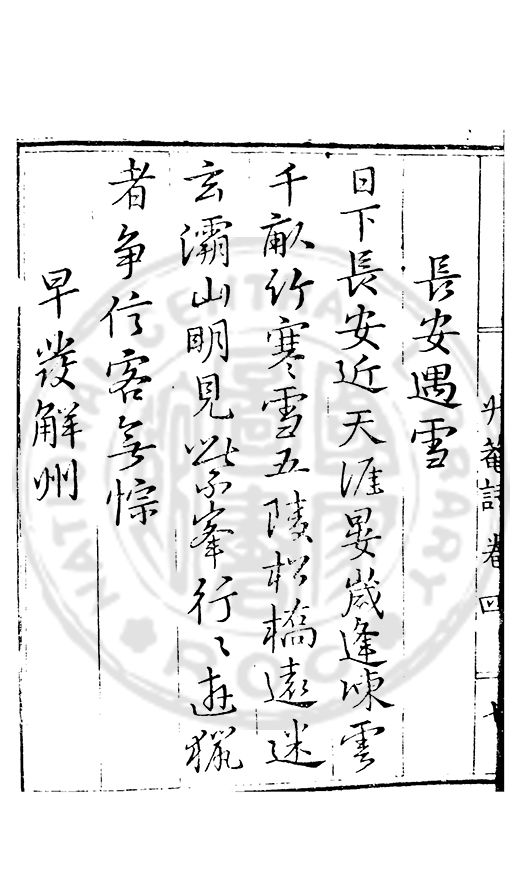 升菴詩卷四
長安遇雪
日下長安近天涯晏歲逢凍雲
千畝竹寒雪五陵松橋遠迷
玄灞山明見紫峯行〻遊獵
者爭信客無悰
早發解州
NATIONAL CENTRAL LIBRARY